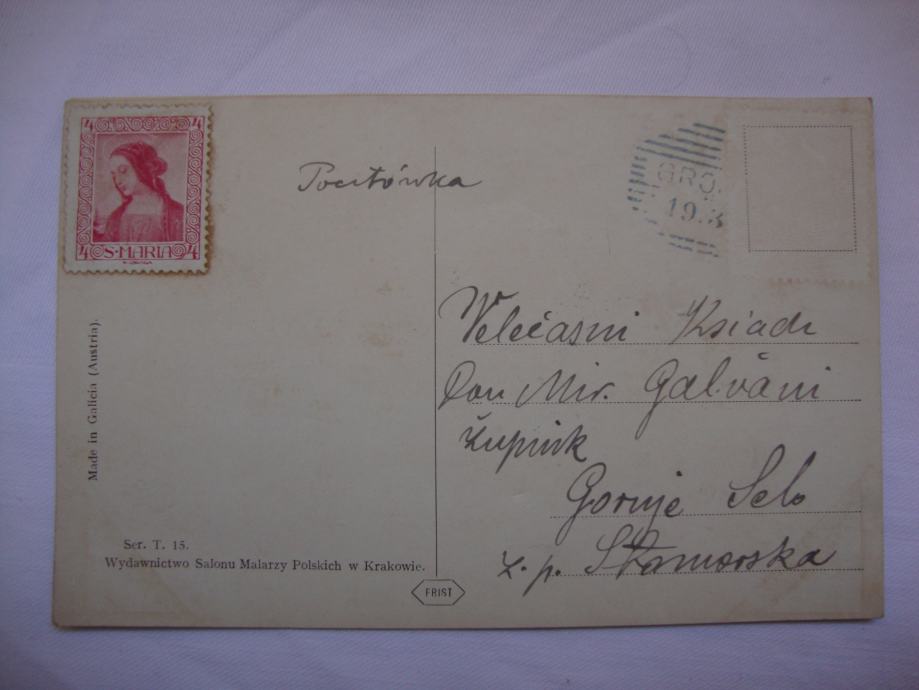 4 4
4 S·MARIA 4
Pocztówka
GRO.
19.3
Velečasni Ksiadz
Don Mir. Galváni
župnik
Gornje Selo
z. p. Stomorska
Made in Galicia (Austria).
Ser. T. 15.
Wydawnictwo Salonu Malarzy Polskich w Krakowie.
FRIST